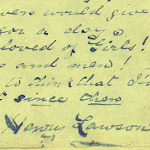 ers would give
for a day
loved of Girls!
s and men!
to think that I'm
since then
Henry Lawson